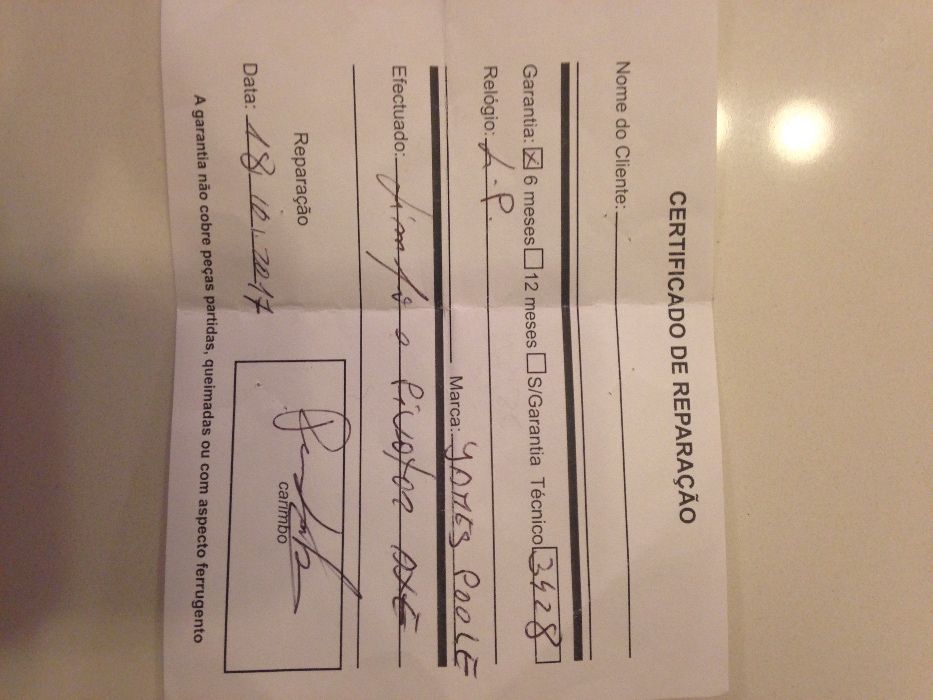 CERTIFICADO DE REPARAÇÃO
Nome do Cliente:
Garantia: ☒ 6 meses ☐ 12 meses ☐ S/Garantia Técnico 3428
Relógio: L.P. Marca: JAMES POOLE
Efectuado: Limpo e pivotar axe
Reparação
Data: 18.10.2017
carimbo
A garantia não cobre peças partidas, queimadas ou com aspecto ferrugento